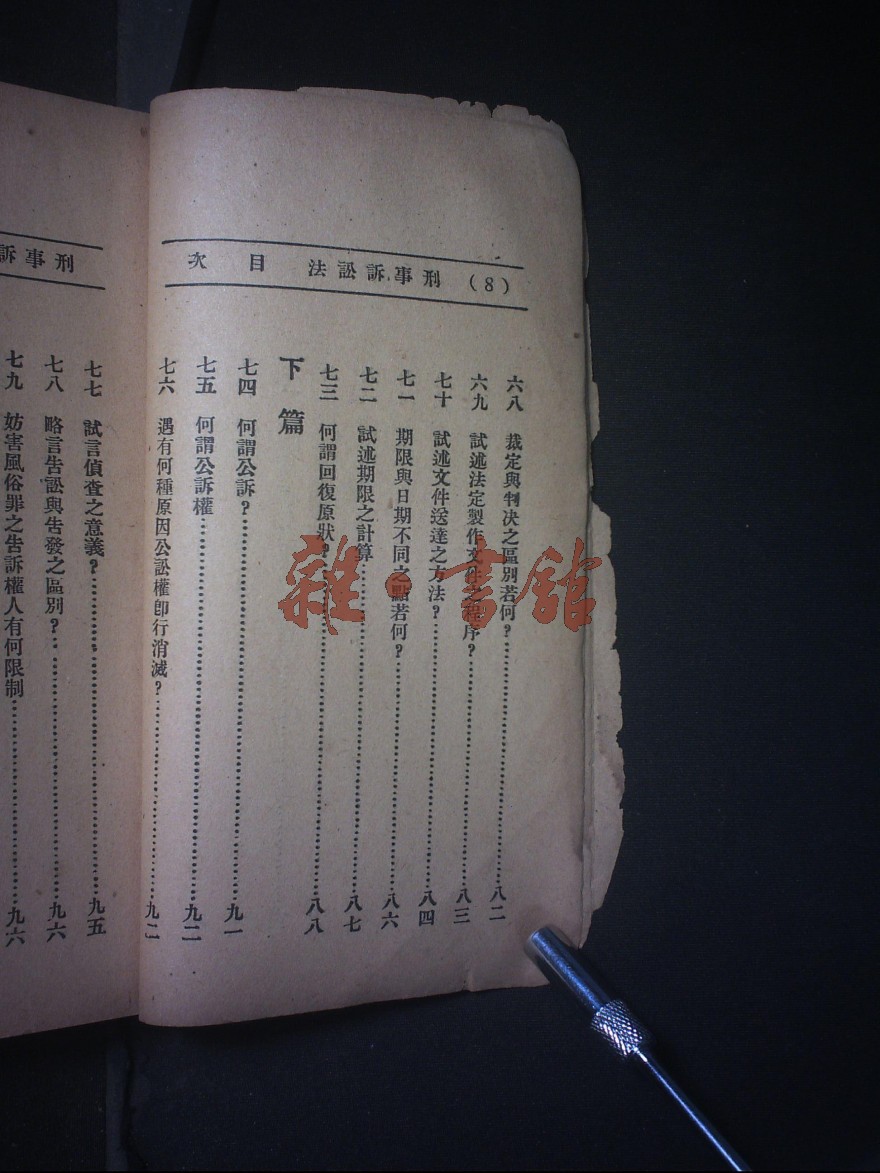 (8) 刑事訴訟法 目次
六八 裁定與判决之區別若何?……八二
六九 試述法定製作文件之程序?……八三
七十 試述文件送達之方法?……八四
七一 期限與日期不同之點若何?……八六
七二 試述期限之計算……八七
七三 何謂回復原狀?……八八
下篇
七四 何謂公訴?……九一
七五 何謂公訴權……九二
七六 遇有何種原因公訟權卽行消滅?……九二
刑事訴
七七 試言偵查之意義?……九五
七八 略言告訟與告發之區別?……九六
七九 妨害風俗罪之告訴權人有何限制……九六
雜·書館